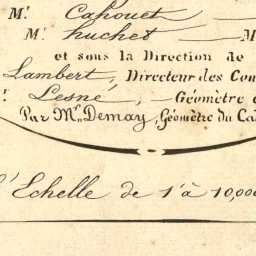 Mr. Capouet
Mr. huchet M
et sous la Direction de
Lambert, Directeur des Con
r. Lesné, Géomètre e
Par Mr. Demay, Géomètre du Ca
l'Echelle de 1 à 10,000